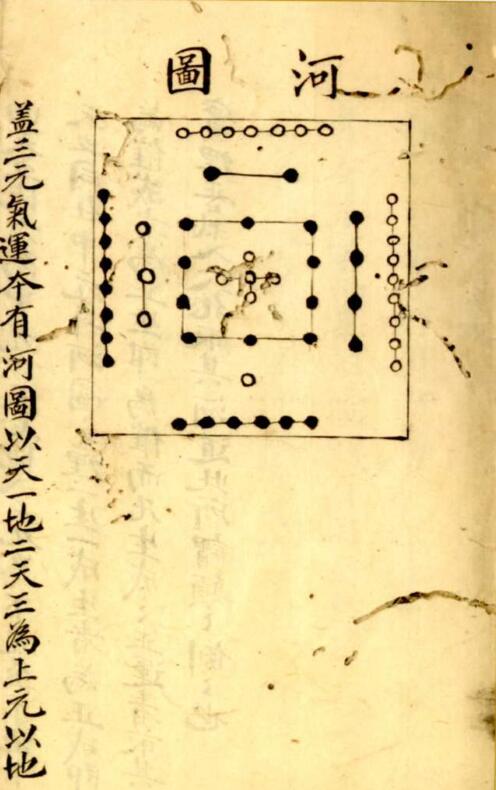 河圖
蓋三元氣運夲有河圖以天一地二天三為上元以地